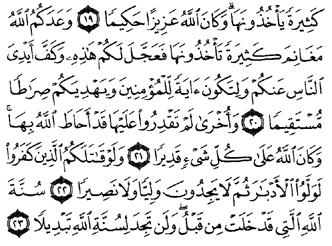 كَثِيرَةً يَأْخُذُونَهَا ۗ وَكَانَ اللَّهُ عَزِيزًا حَكِيمًا ١٩ وَعَدَكُمُ اللَّهُ
مَغَانِمَ كَثِيرَةً تَأْخُذُونَهَا فَعَجَّلَ لَكُمْ هَٰذِهِ وَكَفَّ أَيْدِيَ
النَّاسِ عَنكُمْ وَلِتَكُونَ ءَايَةً لِّلْمُؤْمِنِينَ وَيَهْدِيَكُمْ صِرَاطًا
مُّسْتَقِيمًا ٢٠ وَأُخْرَىٰ لَمْ تَقْدِرُوا عَلَيْهَا قَدْ أَحَاطَ اللَّهُ بِهَا ۚ
وَكَانَ اللَّهُ عَلَىٰ كُلِّ شَيْءٍ قَدِيرًا ٢١ وَلَوْ قَاتَلَكُمُ الَّذِينَ كَفَرُوا
لَوَلَّوُا الْأَدْبَارَ ثُمَّ لَا يَجِدُونَ وَلِيًّا وَلَا نَصِيرًا ٢٢ سُنَّةَ
اللَّهِ الَّتِي قَدْ خَلَتْ مِن قَبْلُ ۖ وَلَن تَجِدَ لِسُنَّةِ اللَّهِ تَبْدِيلًا ٢٣